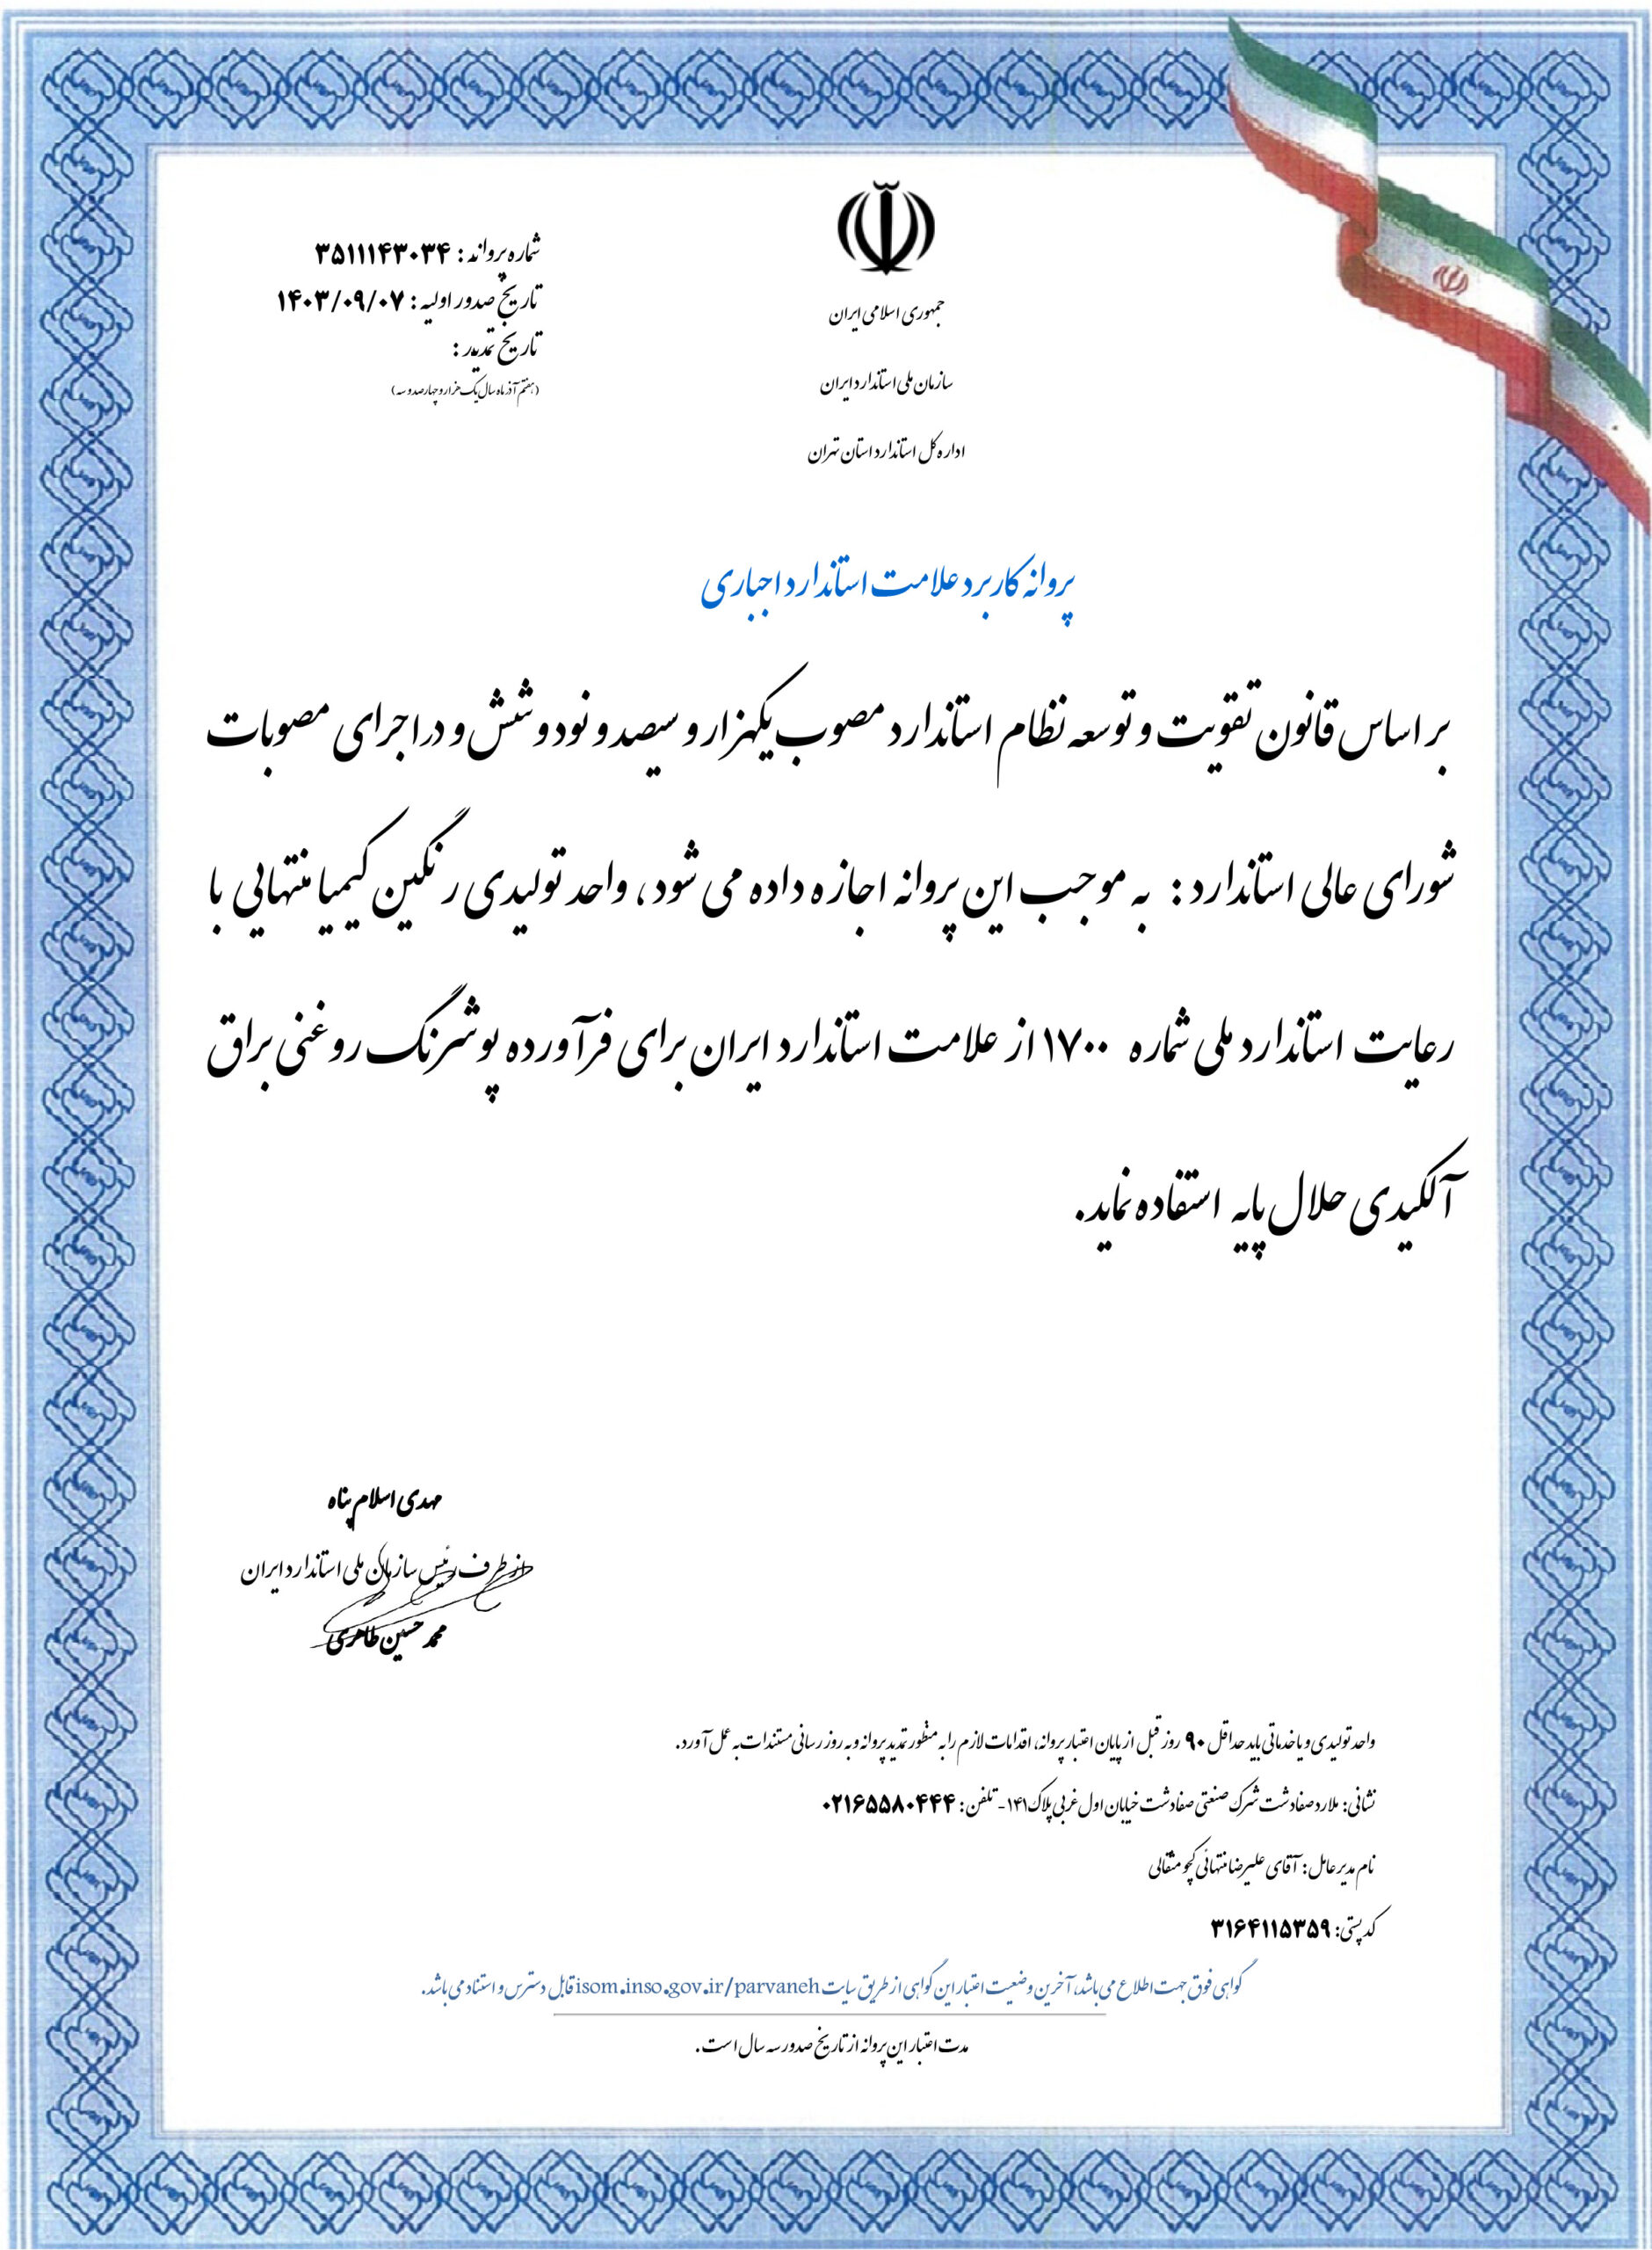 شماره پروانه : ۳۵۱۱۱۴۳۰۳۴
تاریخ صدور اولیه : ۱۴۰۳/۰۹/۰۷
تاریخ تمدید :
(هفتم آذر ماه سال یک هزار و چهارصد و سه)
جمهوری اسلامی ایران
سازمان ملی استاندارد ایران
اداره کل استاندارد استان تهران
پروانه کاربرد علامت استاندارد اجباری
بر اساس قانون تقویت و توسعه نظام استاندارد مصوب یکهزار و سیصد و نود و شش و در اجرای مصوبات
شورای عالی استاندارد : به موجب این پروانه اجازه داده می شود، واحد تولیدی رنگین کیمیا منتهایی با
رعایت استاندارد ملی شماره ۱۷۰۰ از علامت استاندارد ایران برای فرآورده پوشرنگ روغنی براق
آلکیدی حلال پایه استفاده نماید.
مهدی اسلام پناه
از طرف رئیس سازمان ملی استاندارد ایران
محمد حسین طاهری
واحد تولیدی و یا خدماتی باید حداقل ۹۰ روز قبل از پایان اعتبار پروانه، اقدامات لازم را به منظور تمدید پروانه و به روز رسانی مستندات به عمل آورد.
نشانی: ملارد صفادشت شهرک صنعتی صفادشت خیابان اول غربی پلاک۱۴۱- تلفن: ۰۲۱۶۵۵۸۰۴۴۴
نام مدیر عامل: آقای علیرضا منتهائی کچو مثقالی
کد پستی: ۳۱۶۴۱۱۵۳۵۹
گواهی فوق جهت اطلاع می باشد، آخرین وضعیت اعتبار این گواهی از طریق سایت isom.inso.gov.ir/parvaneh قابل دسترس و استناد می باشد.
مدت اعتبار این پروانه از تاریخ صدور سه سال است.